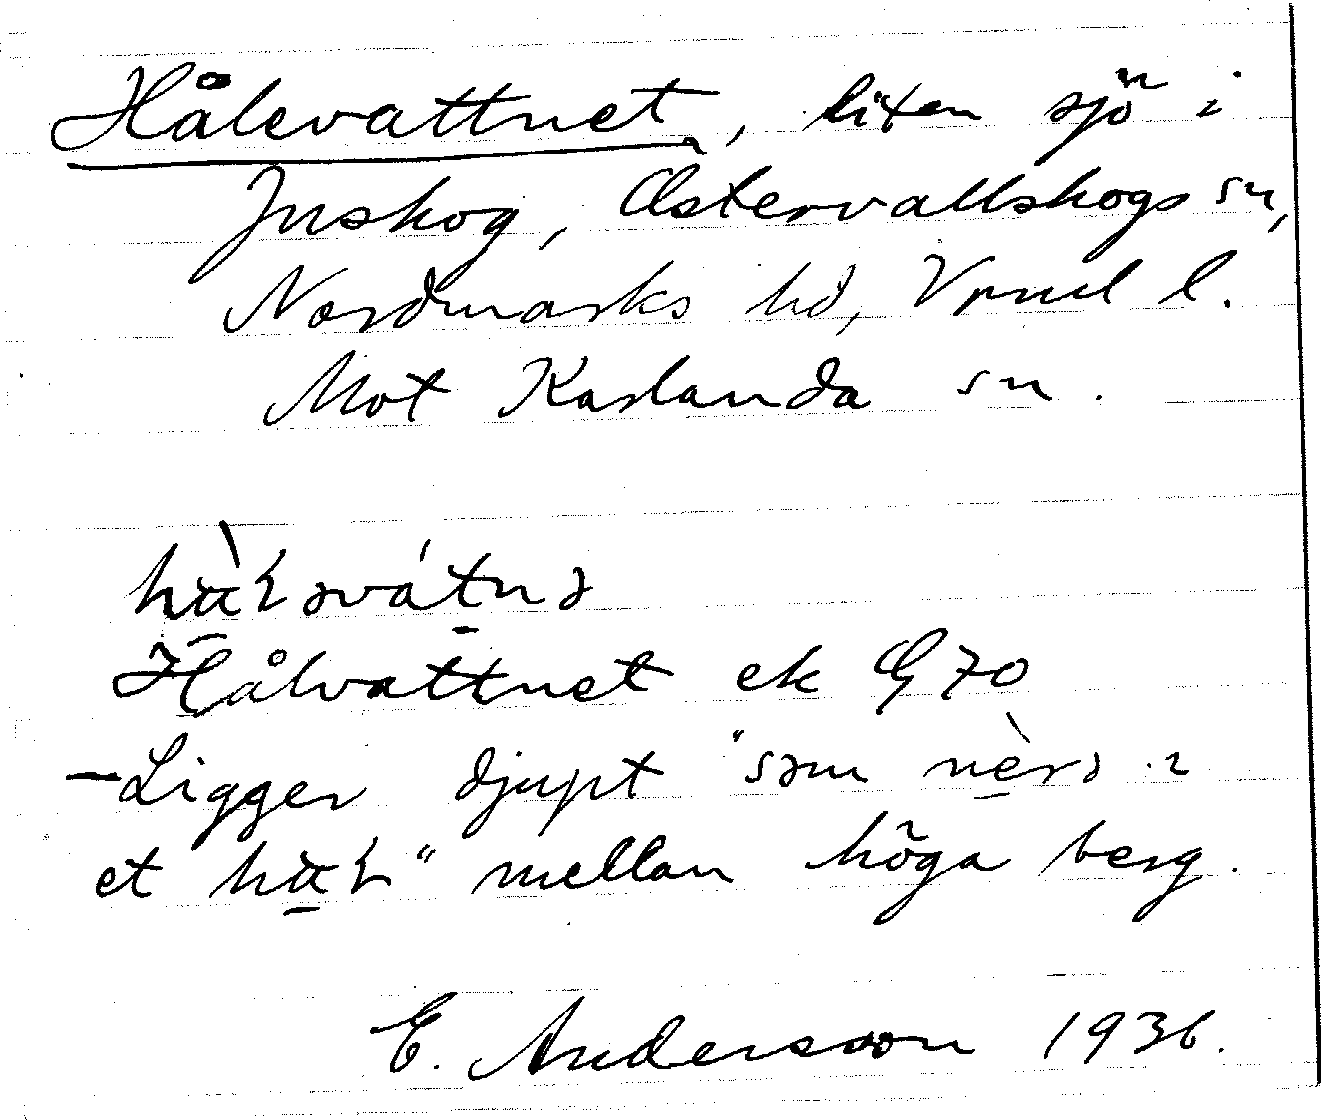 Hålevattnet, liten sjö i
Juskog, Östervallskogs sn,
Nordmarks hd, Vrml l.
Mot Karlanda sn.
Hålvattnet ek G 70
– Ligger djupt "səm nèrə i
et hɑɽ" mellan höga berg.
E. Andersson 1936.